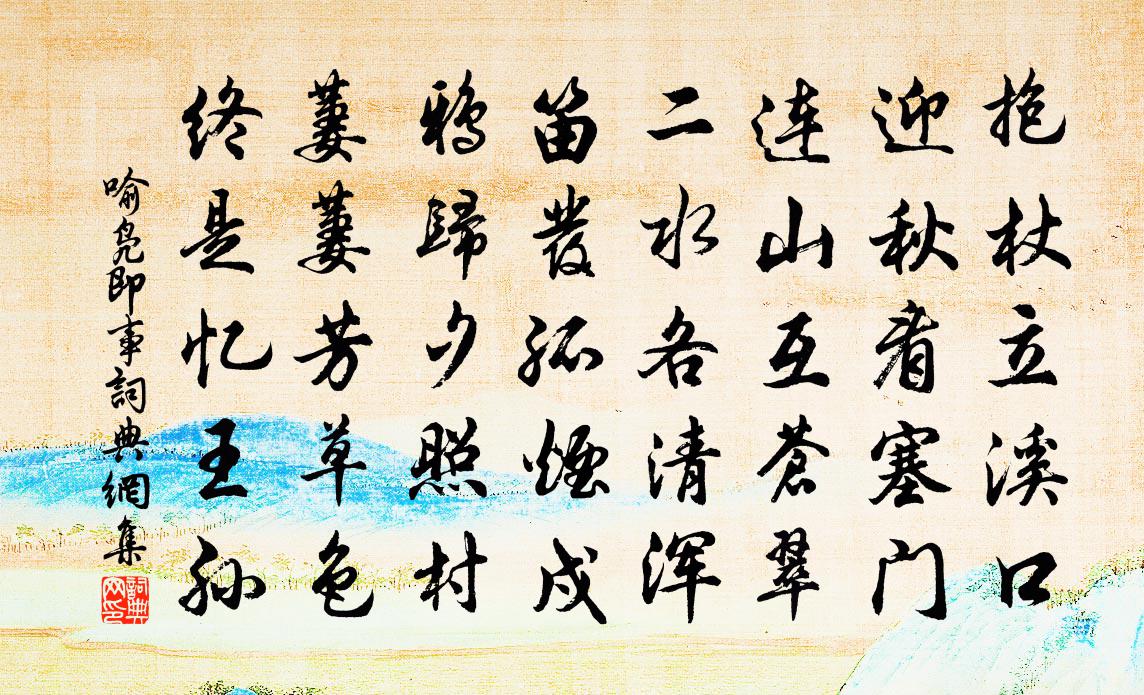 抱杖立溪口
迎秋看塞门
连山互苍翠
二水各清浑
笛發孤煙戍
鸦歸夕照村
萋萋芳草色
终是忆王孙
喻凫即事詞典網集
詞典网印